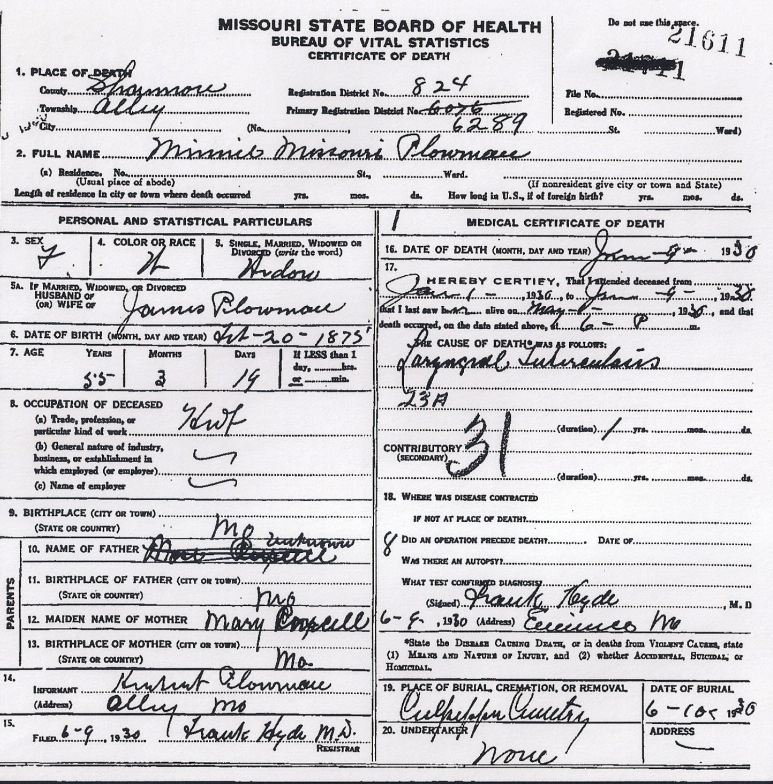 MISSOURI STATE BOARD OF HEALTH
BUREAU OF VITAL STATISTICS
CERTIFICATE OF DEATH
Do not use this space.
21611
1. PLACE OF DEATH
County Shannon Registration District No. 824 File No.
Township Alley Primary Registration District No. 6076 6289 Registered No.
City (No. St. Ward)
2. FULL NAME Minnie Missouri Plowman
(a) Residence. No. St., Ward.
(Usual place of abode) (If nonresident give city or town and State)
Length of residence in city or town where death occurred yrs. mos. ds. How long in U.S., if of foreign birth? yrs. mos. ds.
PERSONAL AND STATISTICAL PARTICULARS
3. SEX F
4. COLOR OR RACE W
5. SINGLE, MARRIED, WIDOWED OR DIVORCED (write the word) Widow
5A. IF MARRIED, WIDOWED, OR DIVORCED
HUSBAND OF
(OR) WIFE OF James Plowman
6. DATE OF BIRTH (MONTH, DAY AND YEAR) -20-1875
7. AGE YEARS MONTHS DAYS IF LESS than 1
day, hrs.
or min.
55 3 19
8. OCCUPATION OF DECEASED
(a) Trade, profession, or
particular kind of work Hwf
(b) General nature of industry,
business, or establishment in
which employed (or employer)
(c) Name of employer
9. BIRTHPLACE (CITY OR TOWN)
(STATE OR COUNTRY) Mo
PARENTS
10. NAME OF FATHER unknown
11. BIRTHPLACE OF FATHER (CITY OR TOWN)
(STATE OR COUNTRY) Mo
12. MAIDEN NAME OF MOTHER Mary
13. BIRTHPLACE OF MOTHER (CITY OR TOWN)
(STATE OR COUNTRY) Mo
14.
INFORMANT Plowman
(Address) Alley Mo
15.
FILED 6-9, 1930 Frank Hyde M.D.
REGISTRAR
1 MEDICAL CERTIFICATE OF DEATH
16. DATE OF DEATH (MONTH, DAY AND YEAR) June-9- 1930
17.
I HEREBY CERTIFY, That I attended deceased from
Jan 1-, 1930, to June-9-, 1930
that I last saw her alive on May-, 1930, and that
death occurred, on the date stated above, at 6- P m.
THE CAUSE OF DEATH* WAS AS FOLLOWS:
Laryngeal Tuberculosis
23A
(duration) 1 yrs. mos. ds.
CONTRIBUTORY 31
(SECONDARY)
(duration) yrs. mos. ds.
18. WHERE WAS DISEASE CONTRACTED
IF NOT AT PLACE OF DEATH?
8 DID AN OPERATION PRECEDE DEATH? DATE OF
WAS THERE AN AUTOPSY?
WHAT TEST CONFIRMED DIAGNOSIS?
(Signed) Frank Hyde, M. D
6-9, 1930 (Address) Eminence Mo
*State the DISEASE CAUSING DEATH, or in deaths from VIOLENT CAUSES, state
(1) MEANS AND NATURE OF INJURY, and (2) whether ACCIDENTAL, SUICIDAL, or
HOMICIDAL.
19. PLACE OF BURIAL, CREMATION, OR REMOVAL DATE OF BURIAL
Culpepper Cemetry 6-10 1930
20. UNDERTAKER ADDRESS
None